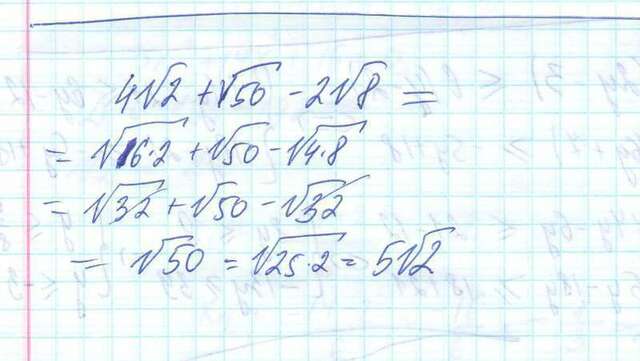 4√2 + √50 - 2√8 =
= √16·2 + √50 - √4·8
= √32 + √50 - √32
= √50 = √25·2 = 5√2